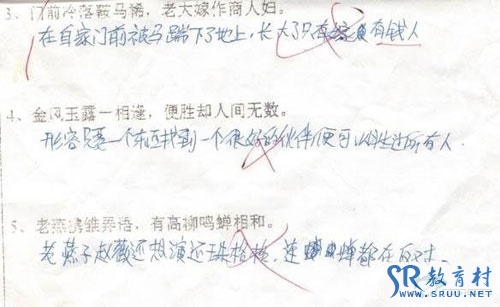 3、门前冷落鞍马稀，老大嫁作商人妇。
在自家门前被马踹下了地上，长大了只有有钱人
4、金风玉露一相逢，便胜却人间无数。
形容只要一个东西找到一个很好的伙伴便可以胜过所有人.
5、老燕携雏弄语，有高柳鸣蝉相和。
老燕子赵薇还想演还珠格格，连蝉都在反对.
SR教育村
www.SRUU.NET